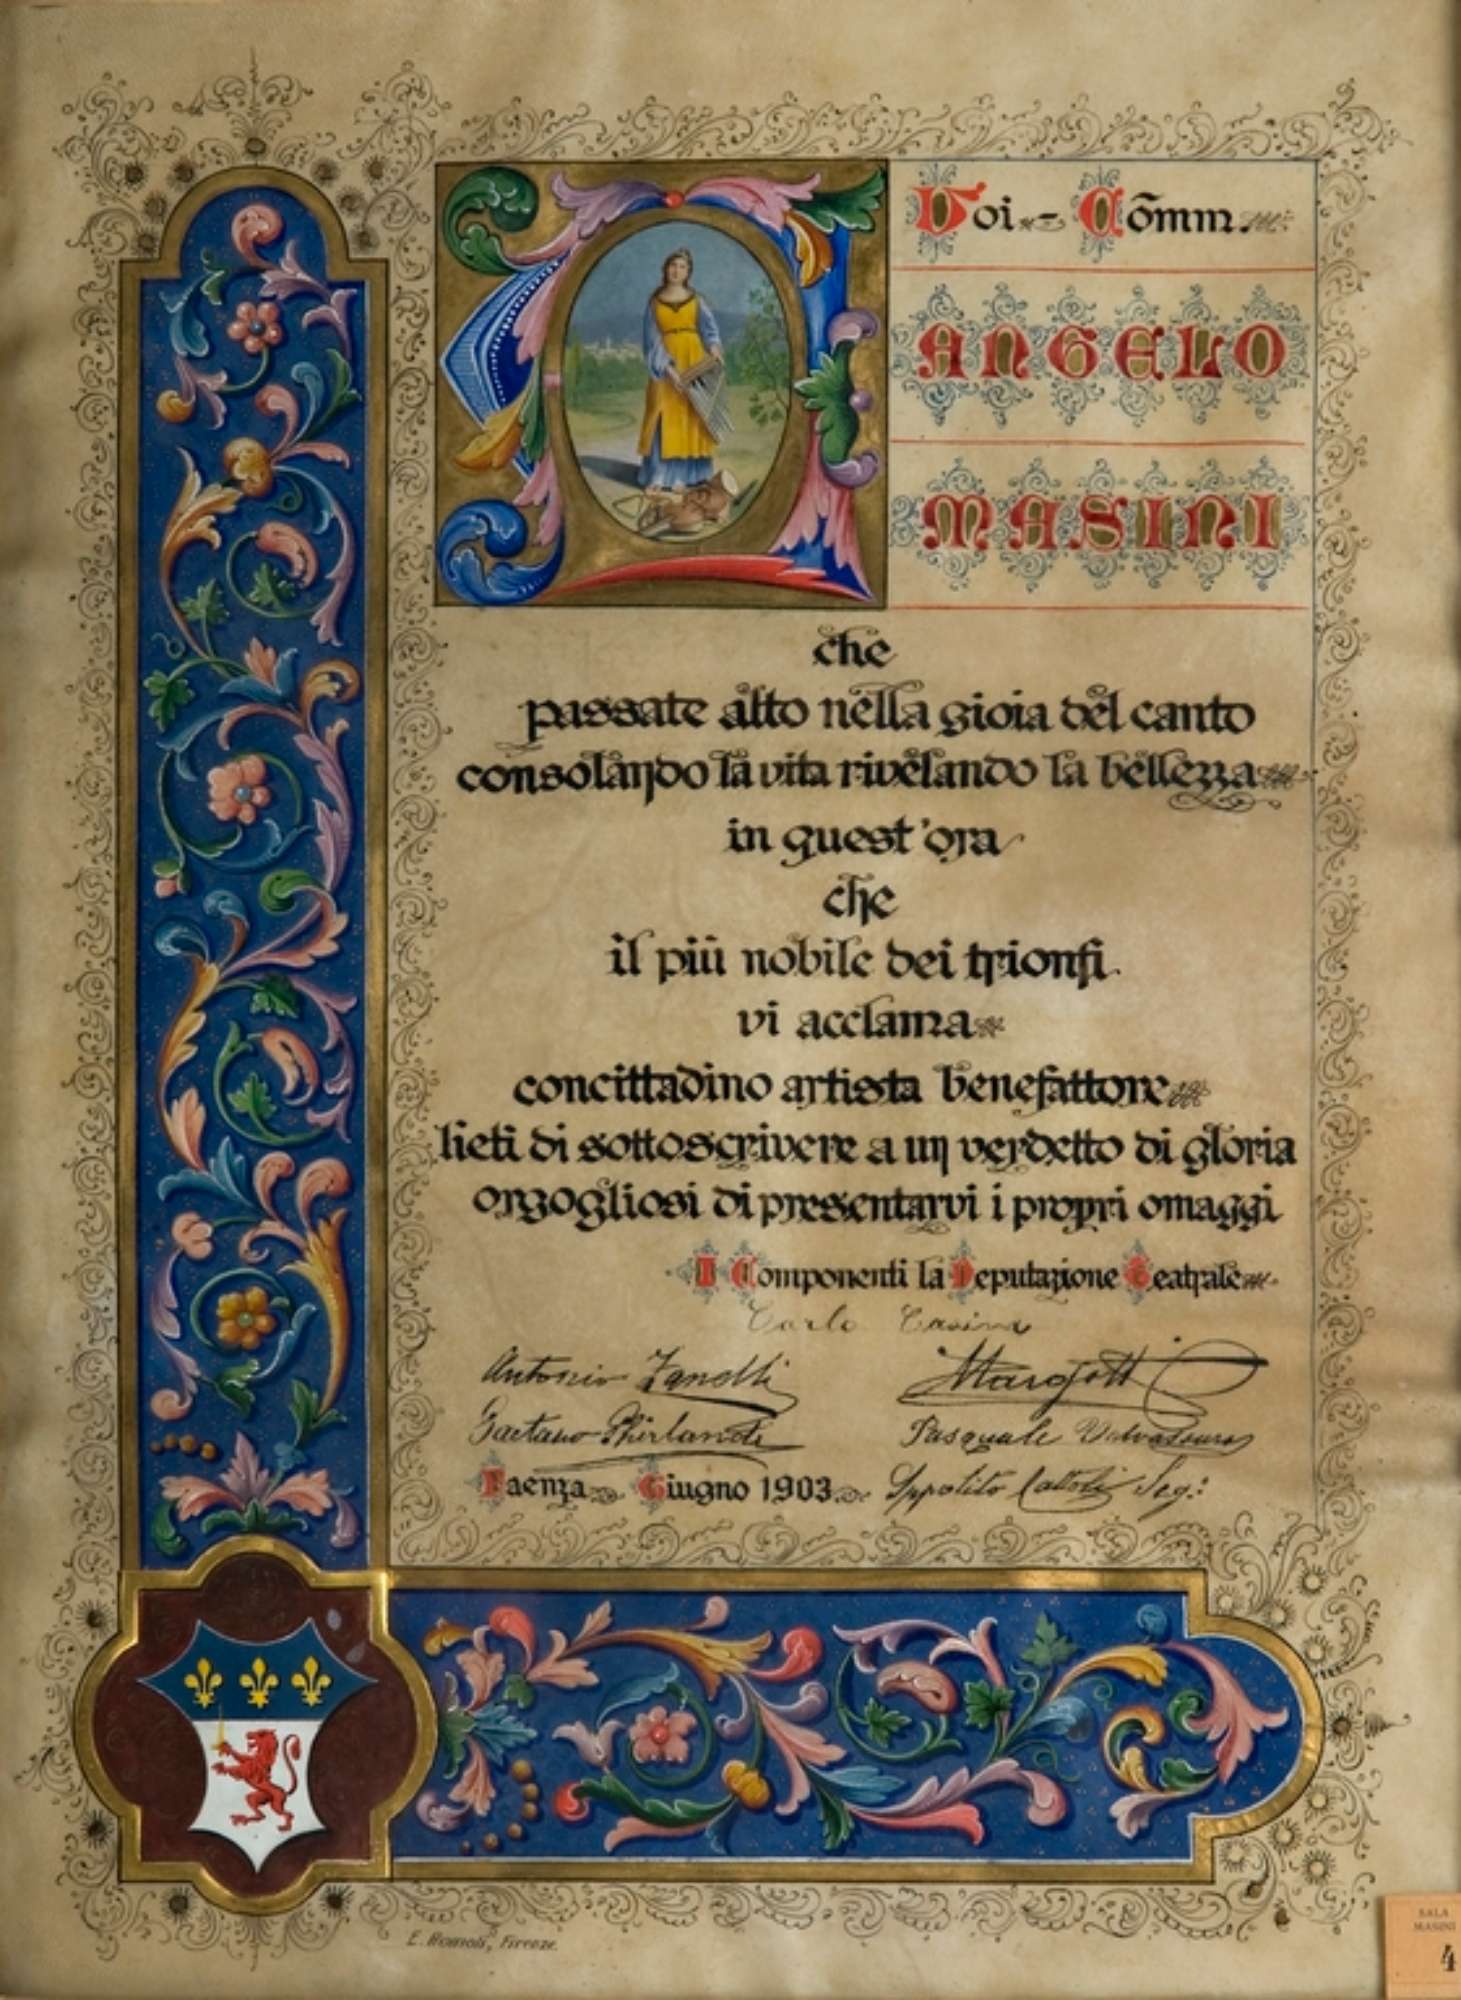 A Voi - Cõmm
ANGELO
MASINI
che
passate alto nella gioia del canto
consolando la vita rivelando la bellezza
in quest'ora
che
il più nobile dei trionfi
vi acclama
concittadino artista benefattore
lieti di sottoscrivere a un verdetto di gloria
orgogliosi di presentarvi i propri omaggi
I Componenti la Deputazione Teatrale
Carlo
Antonio Zanelli
Margotti
Gaetano Ghirlandi
Pasquale
Faenza Giugno 1903
Ippolito Cattoli Seg:
E. Romoli, Firenze.
SALA
MASINI
4